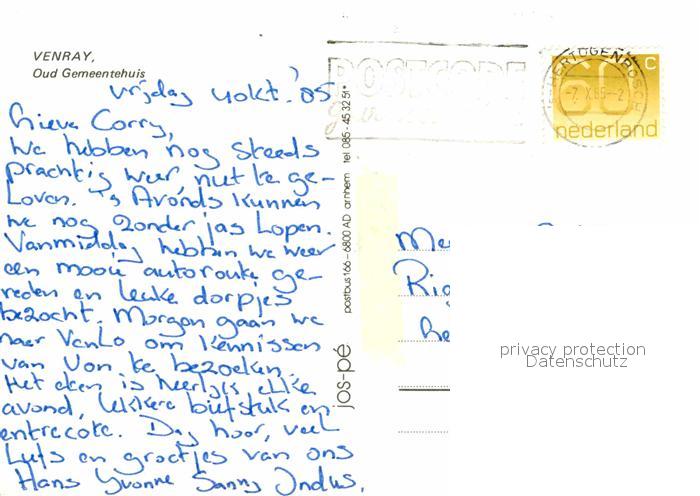 VENRAY,
Oud Gemeentehuis
vrijdag 4 okt. '85
Lieve Corry,
We hebben nog steeds
prachtig weer, niet te ge-
loven. 's Avonds kunnen
we nog zonder jas lopen.
Vanmiddag hebben we weer
een mooie autoroute ge-
reden en leuke dorpjes
bezocht. Morgen gaan we
naar Venlo om kennissen
van Von te bezoeken.
Het eten is heerlijk elke
avond, lekkere biefstuk en
entrecote. Dag hoor, veel
liefs en groetjes van ons
Hans Yvonne Sanny Indus.
jos-pé postbus 166 – 6800 AD arnhem tel 085 - 45 32 51*
POSTCODE
'S-HERTOGENBOSCH
-7.X.85-2
60 c
nederland
Me
Ric
he
privacy protection
Datenschutz